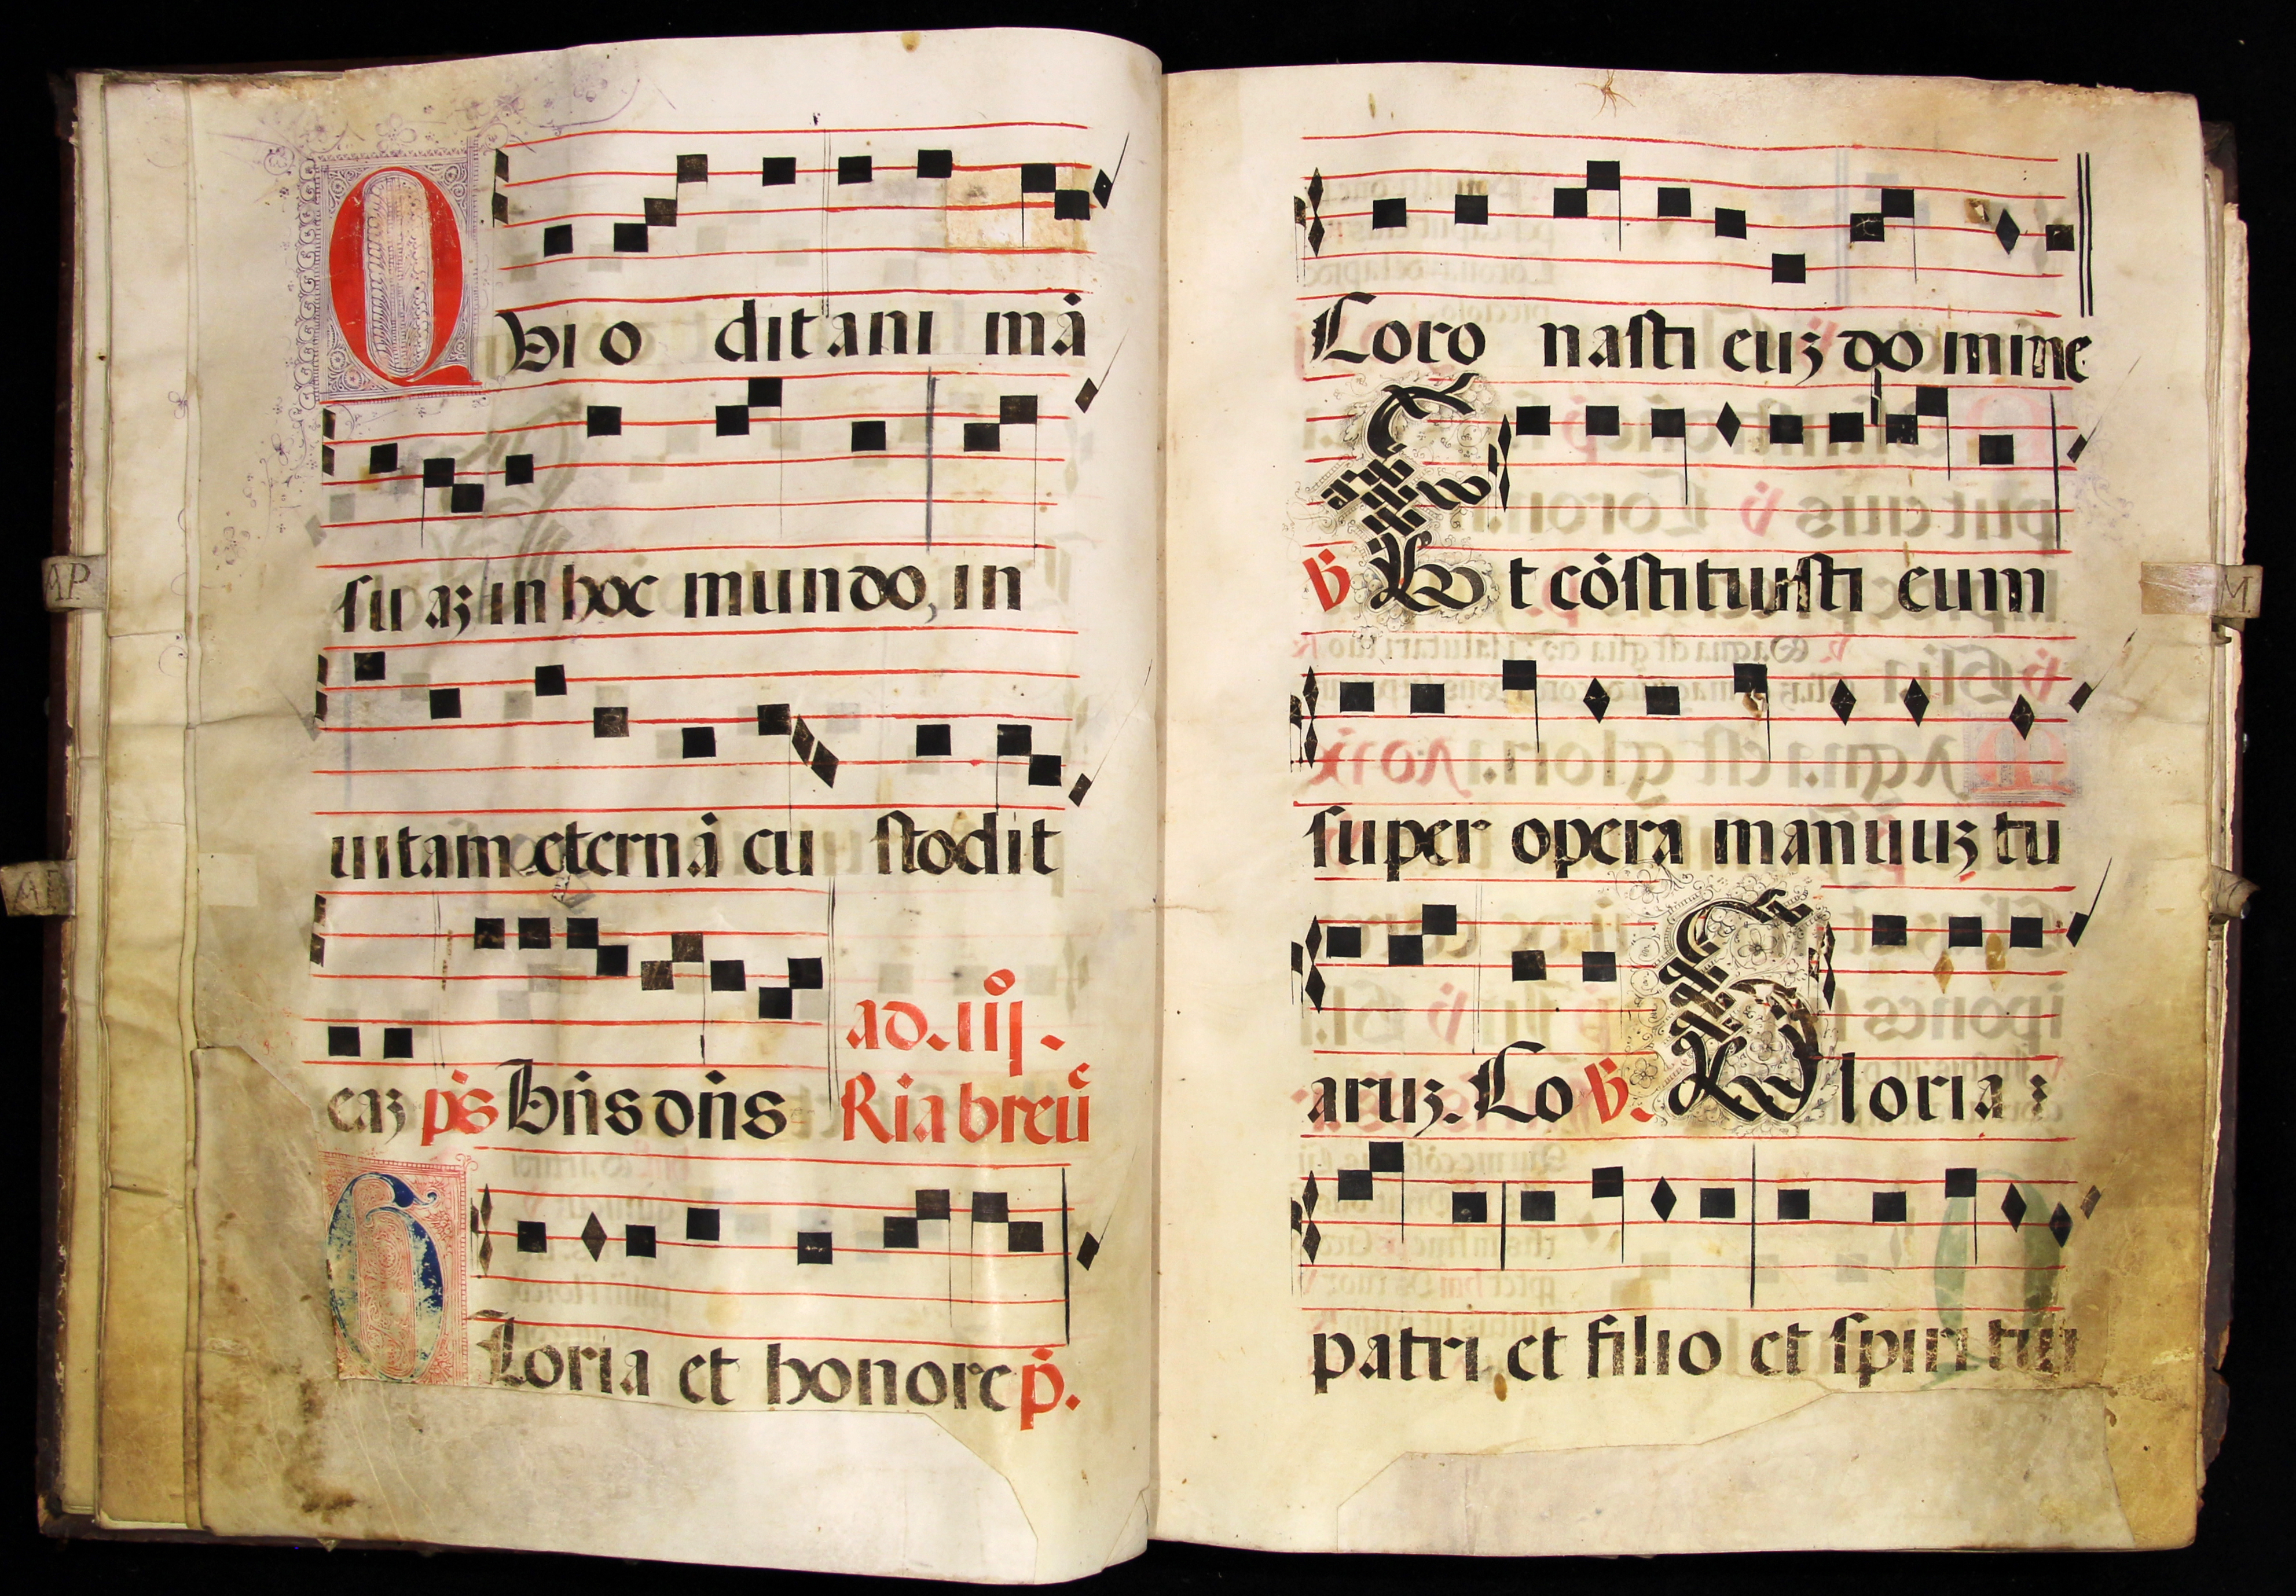 Qui odit animã
suaz in hoc mundo, in
uitam eternã custodit
ad. iij.
eaz ps Bñs dñs Ria breũ
Gloria et honore p.
Coronasti euz domine
℣ Et cõstituisti eum
super opera manuuz tu
aruz. Co ℣. Gloria
patri et filio et spiritui
AP
M